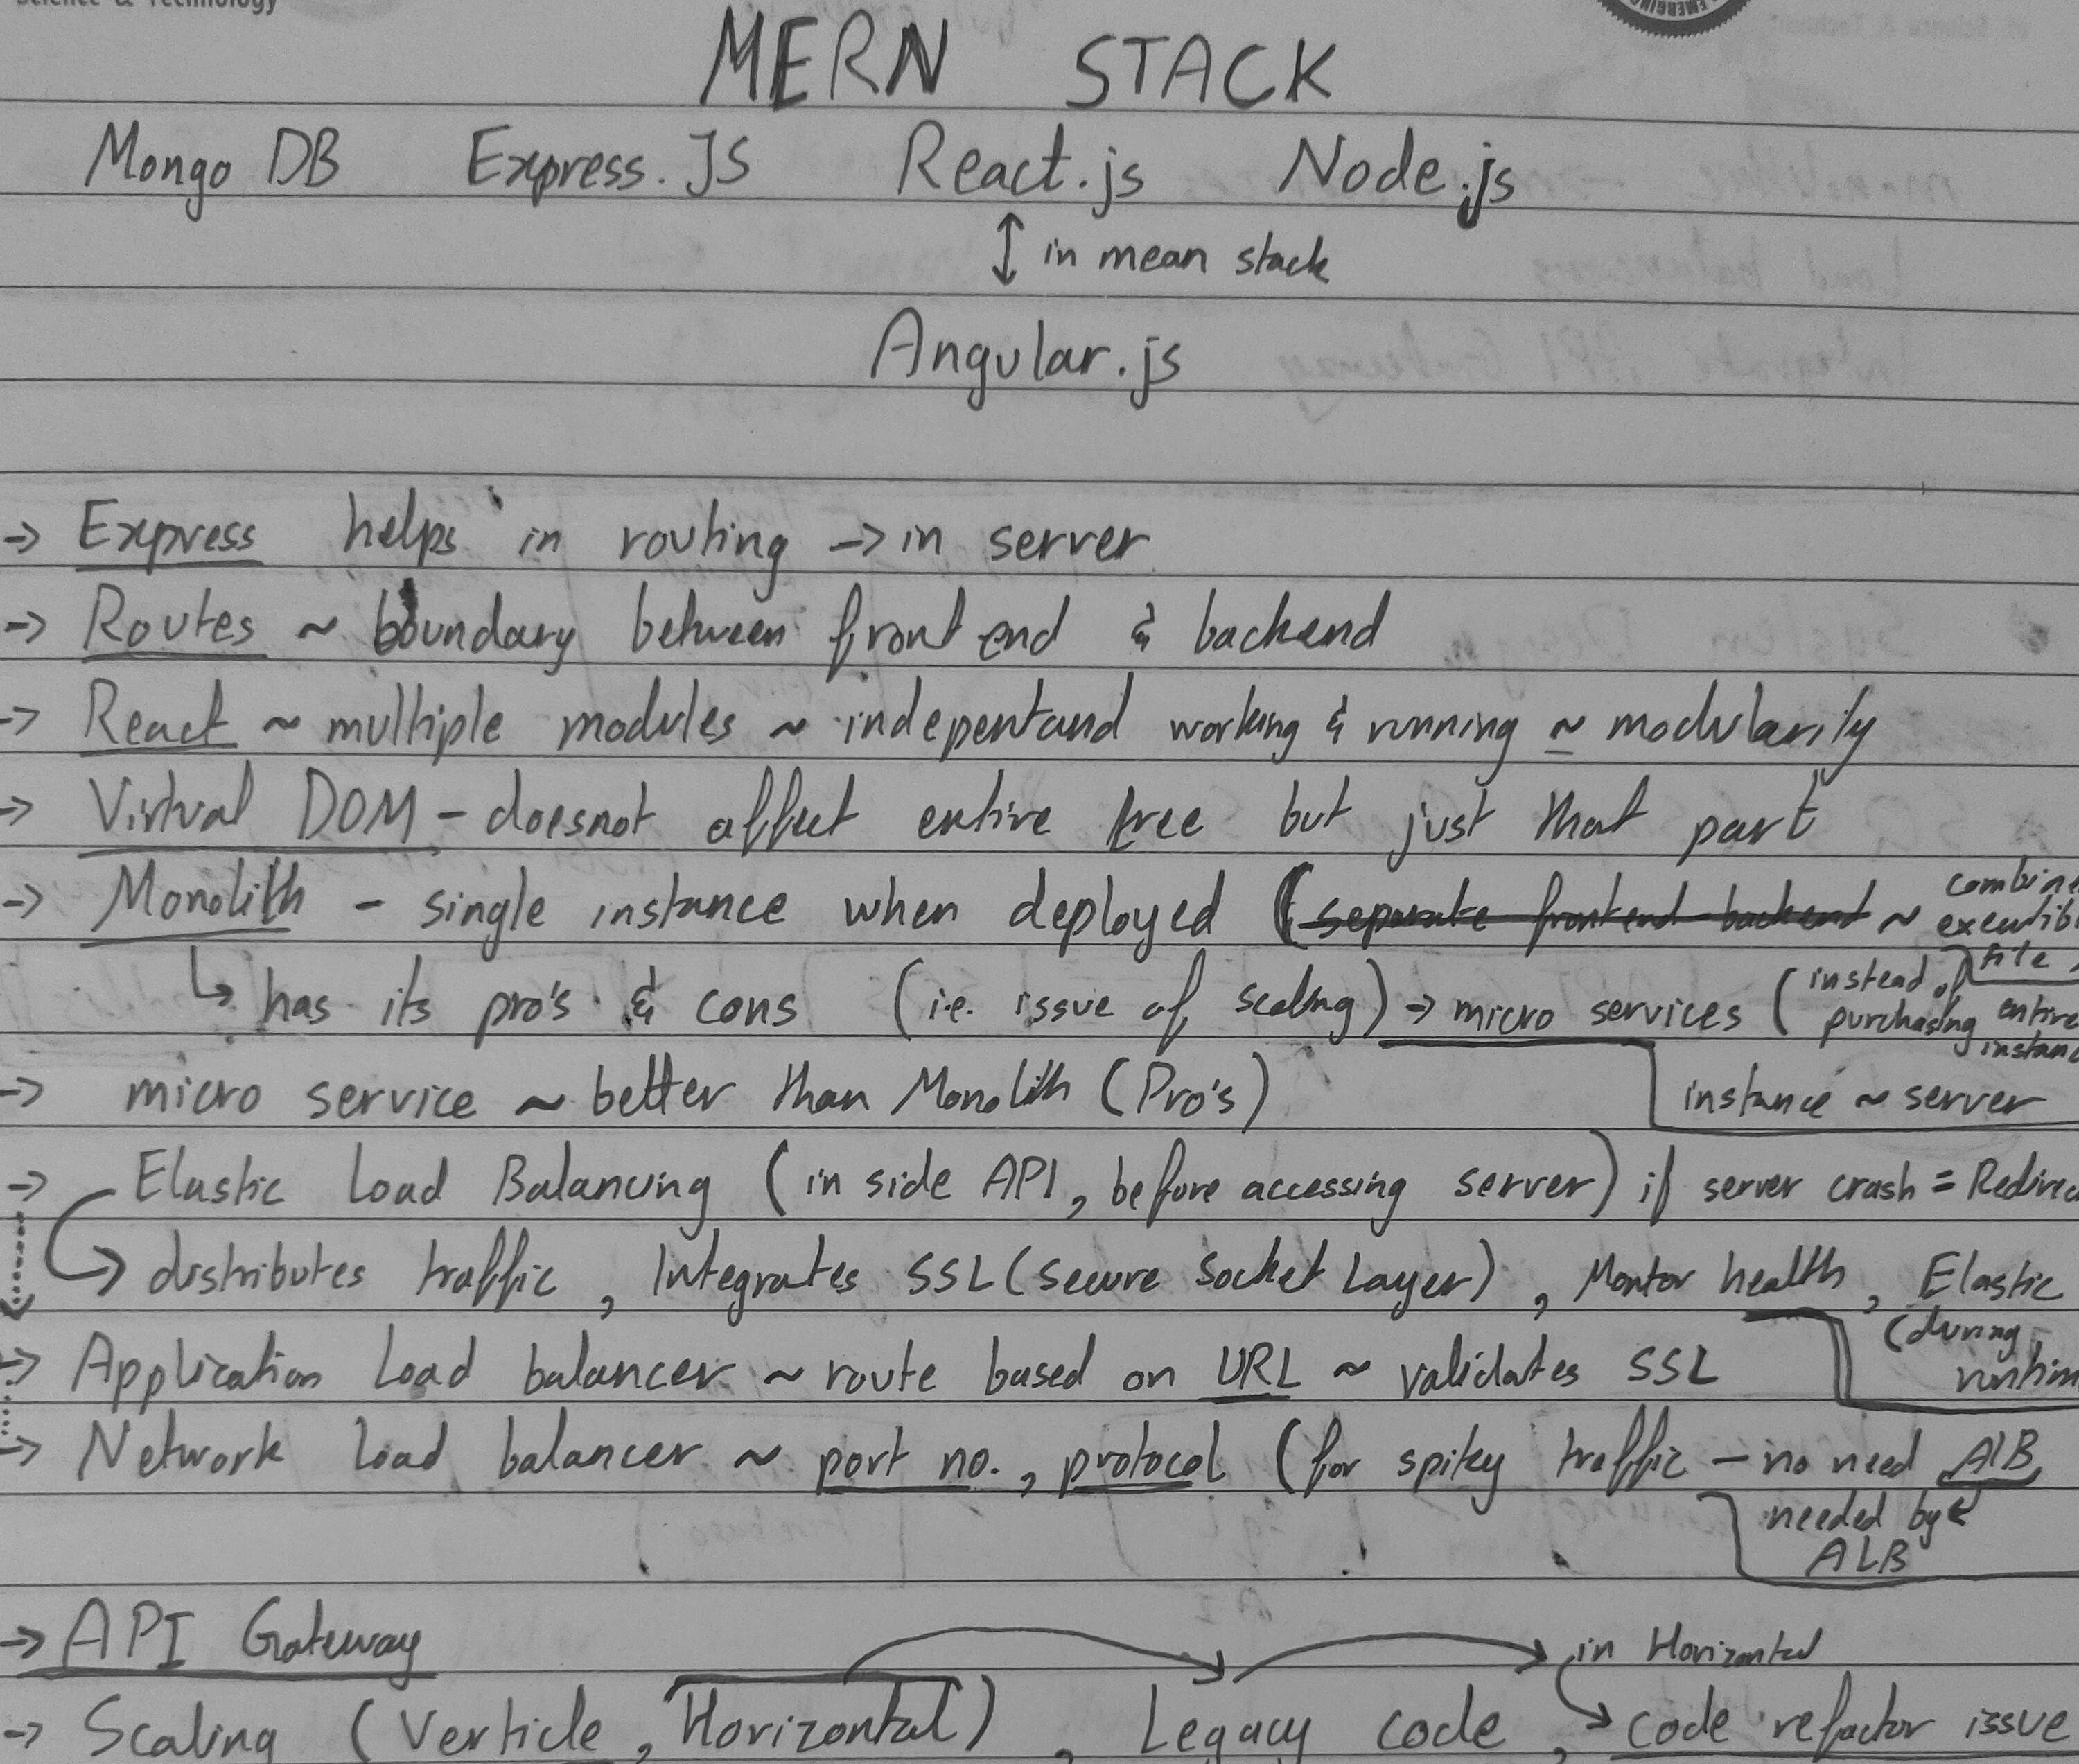 Science & Technology
EMERGING
MERN STACK
Mongo DB Express.JS React.js Node.js
↕ in mean stack
Angular.js
-> Express helps in routing -> in server
-> Routes ~ boundary between front end & backend
-> React ~ multiple modules ~ indepentand working & running ~ modularity
-> Virtual DOM - doesnot affect entire tree but just that part
-> Monolith - single instance when deployed (separate frontend backend ~ combine
file
↳ has its pro's & cons (i.e. issue of scaling) -> micro services (instead of purchasing entire
-> micro service ~ better than Monolith (Pro's)
instance ~ server
-> Elastic Load Balancing (in side API, before accessing server) if server crash = Redirec
-> distributes traffic, Integrates SSL (Secure Socket Layer), Montor health, Elastic
(during
-> Application Load balancer ~ route based on URL ~ validates SSL
-> Network Load balancer ~ port no., protocol (for spiky traffic - no need ALB
needed by
ALB
-> API Gateway
in Horizontal
-> Scaling (Verticle, Horizontal), Legacy code, -> code refactor issue